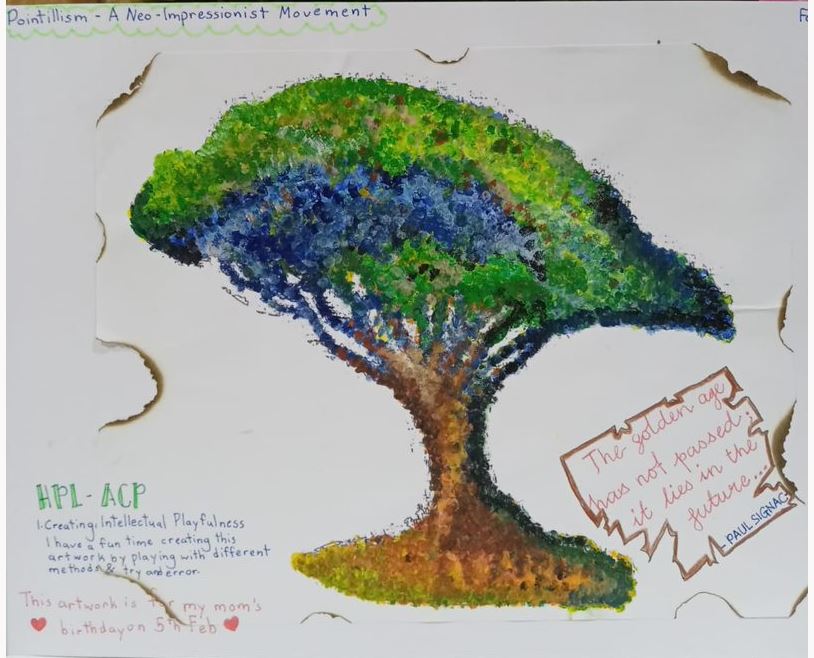 Pointillism - A Neo-Impressionist Movement
The golden age
has not passed;
it lies in the
future...
-PAUL SIGNAC
HPL-ACP
1. Creating: Intellectual Playfulness
I have a fun time creating this
artwork by playing with different
methods & try and error.
This artwork is for my mom's
birthday on 5th Feb